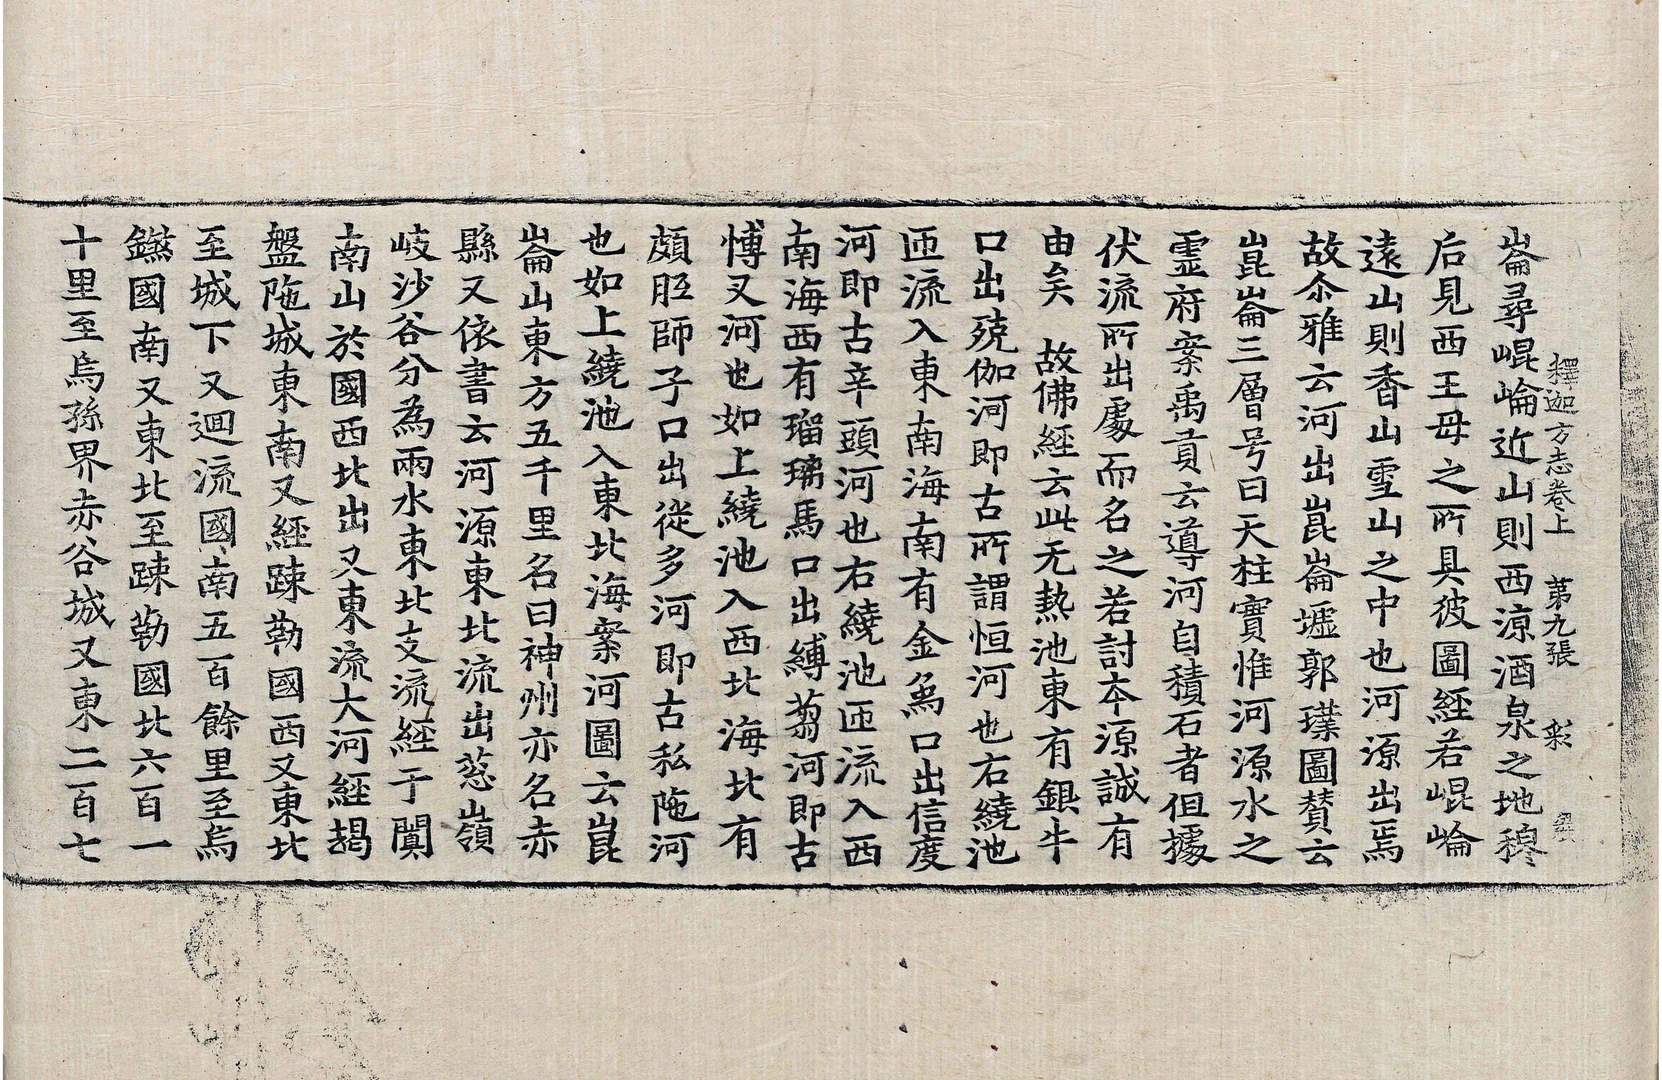 釋迦方志卷上 第九張 彩
崙尋崐崘近山則西涼酒泉之地穆
后見西王母之所具彼圖經若崐崘
遠山則香山雪山之中也河源出焉
故尒雅云河出崑崙墟郭璞圖賛云
崑崙三層号曰天柱實惟河源水之
霊府案禹貢云導河自積石者但據
伏流所出處而名之若討本源誠有
由矣 故佛經云此无熱池東有銀牛
口出殑伽河即古所謂恒河也右繞池
匝流入東南海南有金象口出信度
河即古辛頭河也右繞池匝流入西
南海西有瑠璃馬口出縛芻河即古
愽叉河也如上繞池入西北海北有
頗胝師子口出徙多河即古私陁河
也如上繞池入東北海案河圖云崑
崙山東方五千里名曰神州亦名赤
縣又依書云河源東北流出葱嶺
岐沙谷分為兩水東北支流經于闐
南山於國西北出又東流大河經朅
盤陁城東南又經踈勒國西又東北
至城下又迴流國南五百餘里至烏
鎩國南又東北至踈勒國北六百一
十里至烏孫界赤谷城又東二百七